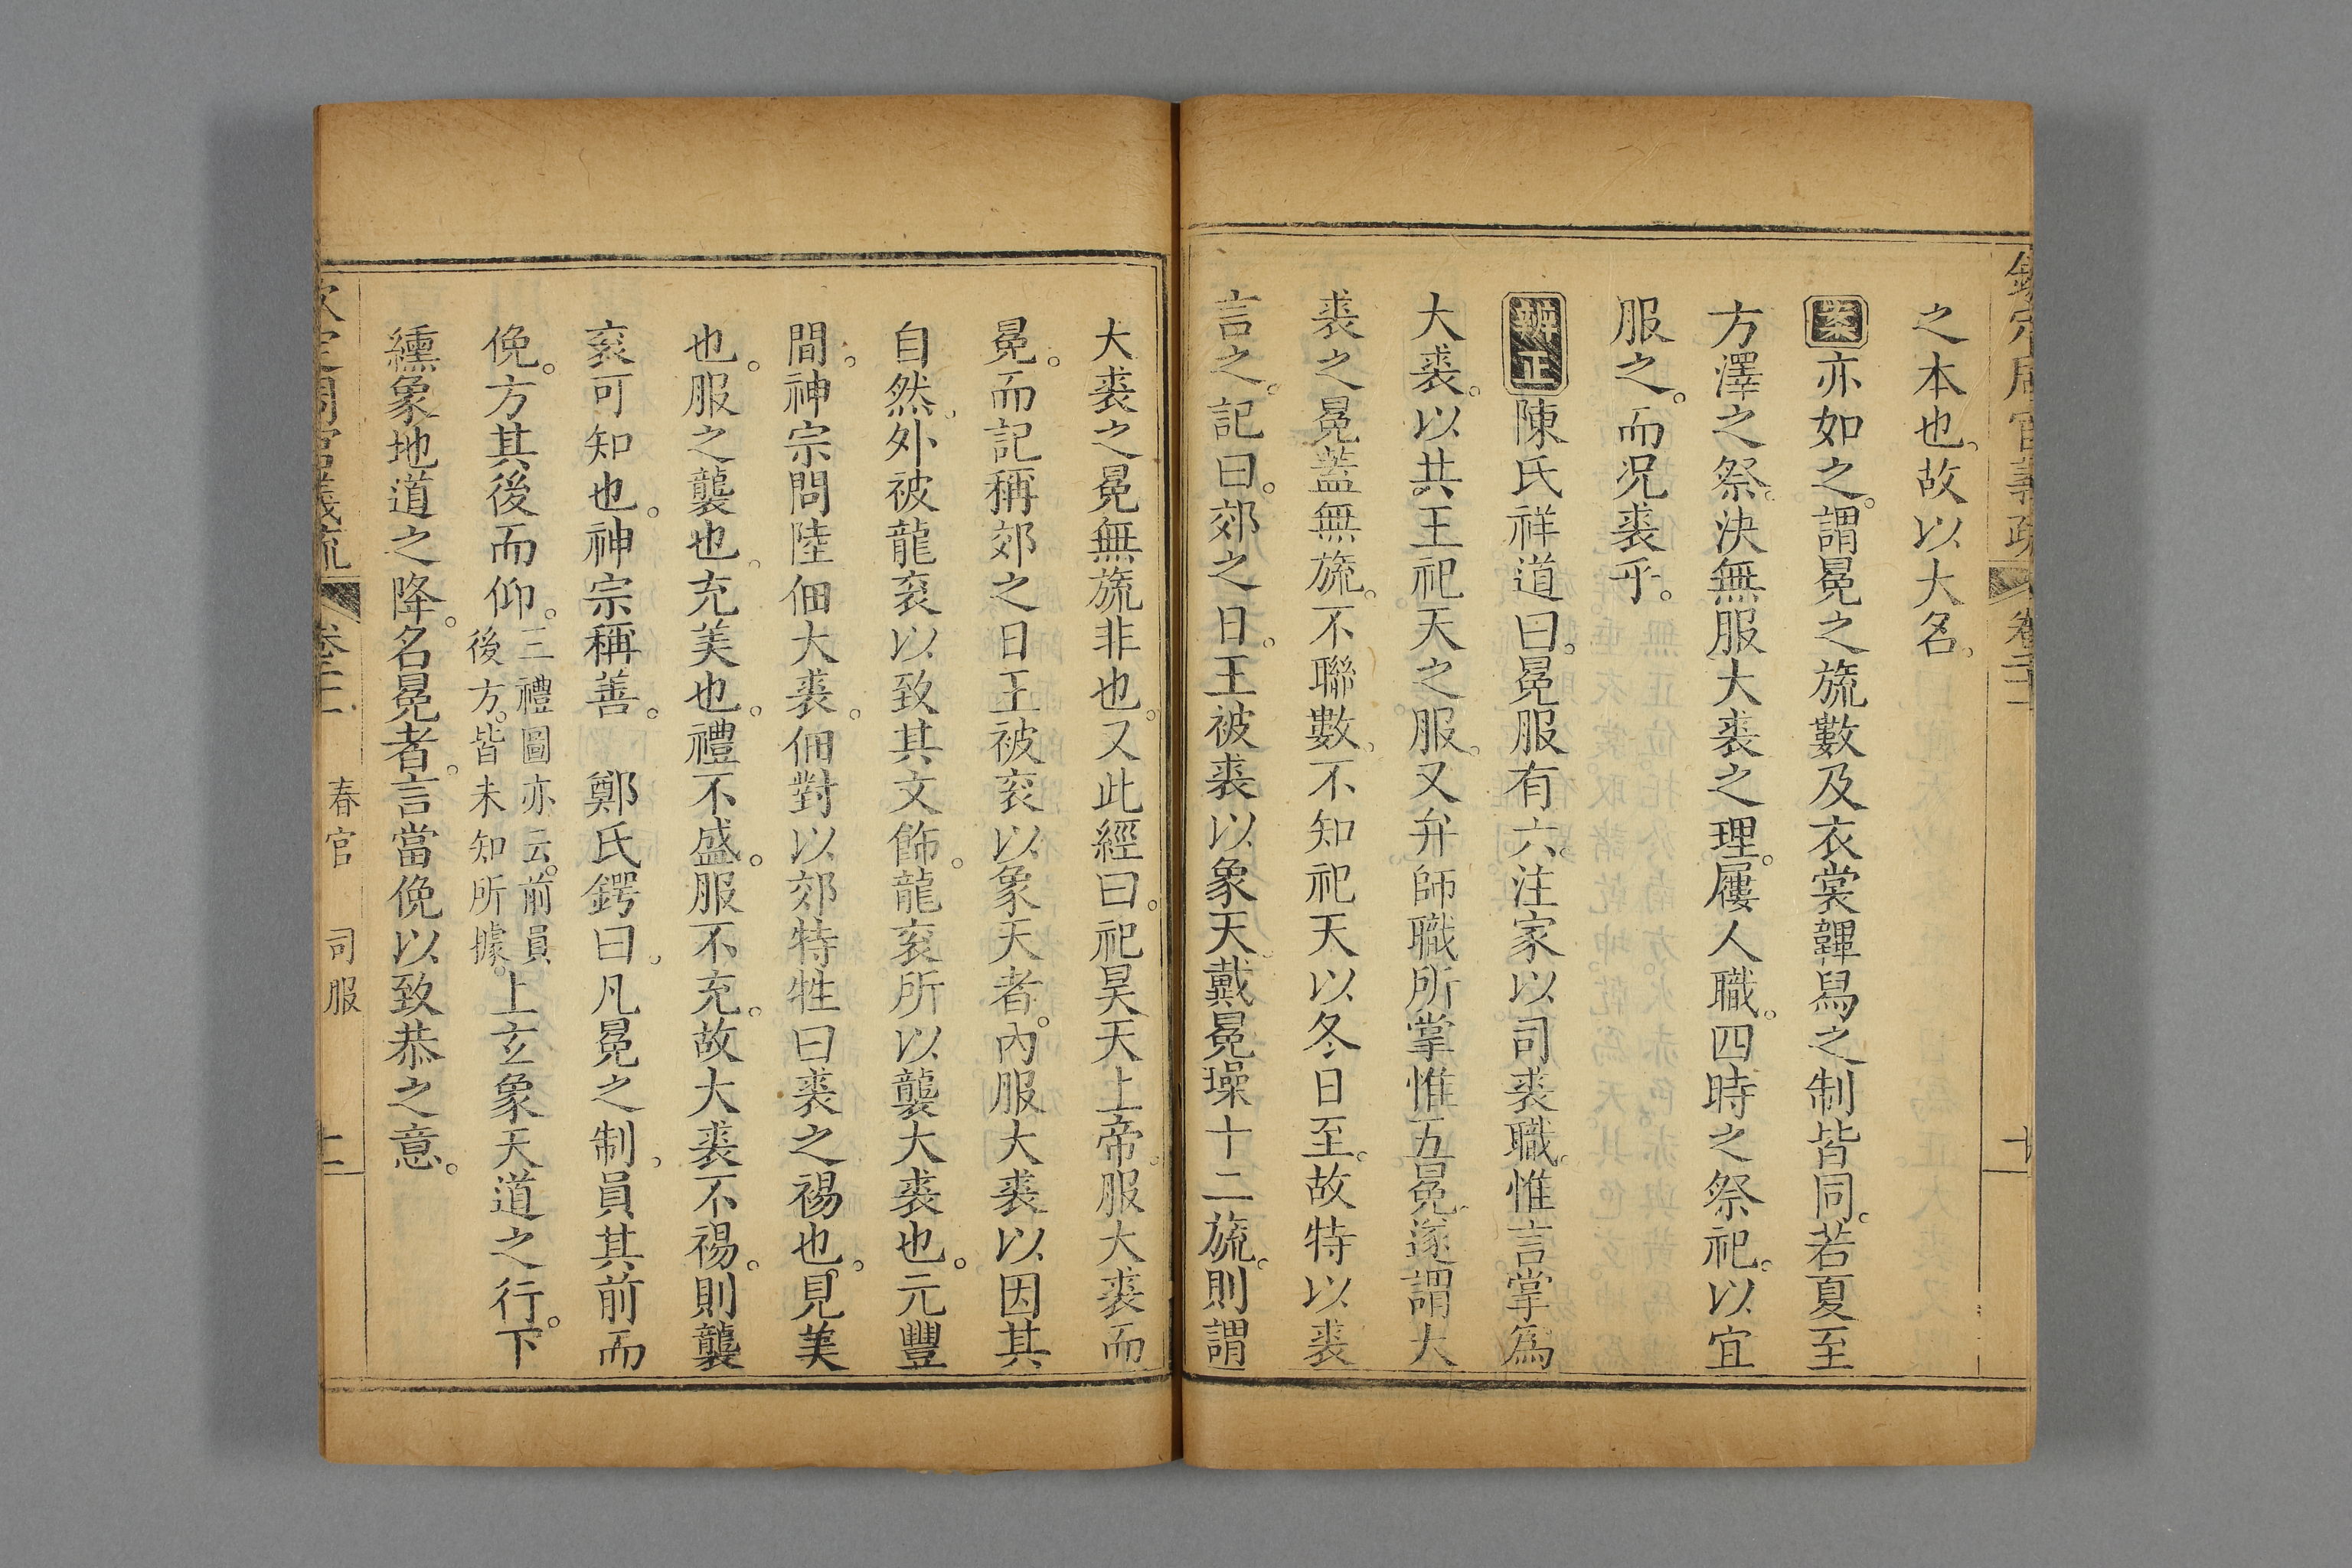 欽定周官義疏 卷二十一
之本也。故以大名。
案亦如之。謂冕之旒數及衣裳韠舄之制皆同。若夏至
方澤之祭。決無服大裘之理。屨人職。四時之祭祀。以宜
服之。而況裘乎。
辨正陳氏祥道曰。冕服有六。注家以司裘職。惟言掌為
大裘。以共王祀天之服。又弁師職所掌惟五冕。遂謂大
裘之冕蓋無旒。不聯數。不知祀天以冬日至。故特以裘
言之。記曰。郊之日。王被裘以象天。戴冕璪十二旒。則謂
大裘之冕無旒非也。又此經曰。祀昊天上帝。服大裘而
冕。而記稱郊之日王被衮以象天者。內服大裘以因其
自然。外被龍衮以致其文飾。龍衮所以襲大裘也。元豐
間。神宗問陸佃大裘。佃對以郊特牲曰裘之裼也。見美
也。服之襲也。充美也。禮不盛。服不充。故大裘不裼。則襲
衮可知也。神宗稱善。 鄭氏鍔曰。凡冕之制。員其前而
俛。方其後而仰。三禮圖亦云。前員後方。皆未知所據。上玄象天道之行。下
纁象地道之降。名冕者。言當俛以致恭之意。
欽定周官義疏 卷二十一 春官 司服 十一